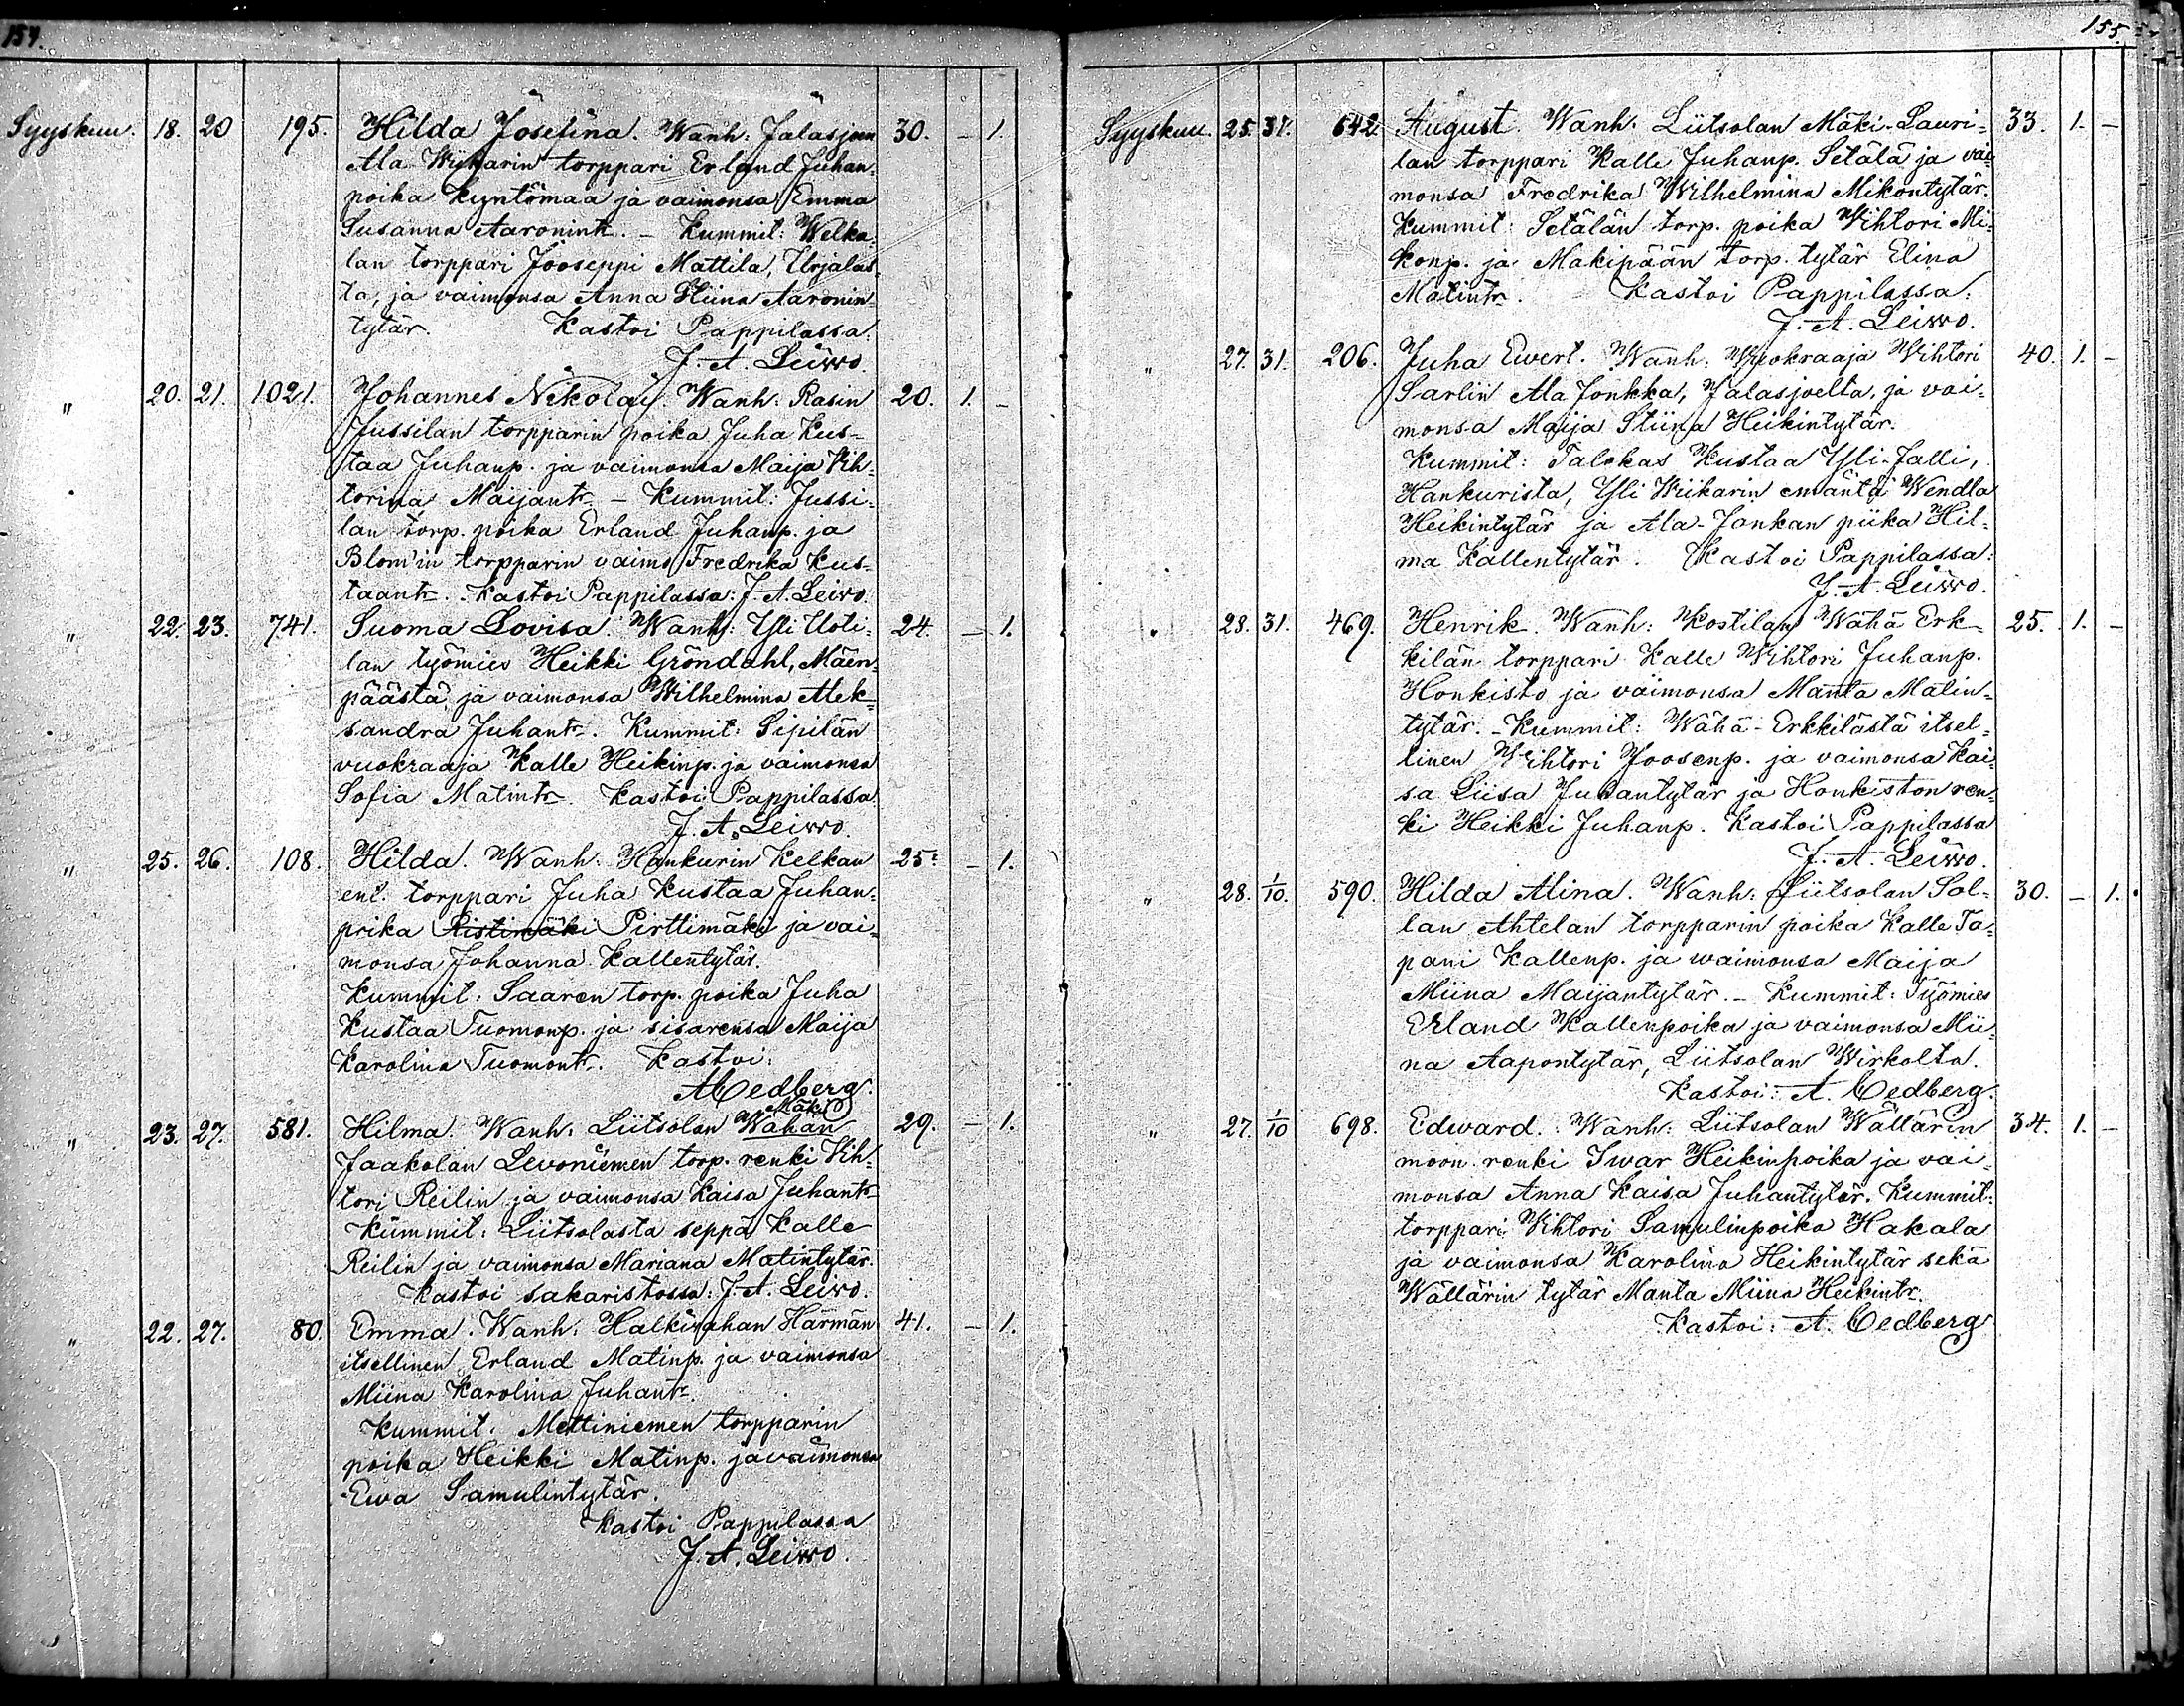 154.
Syyskuu. 18. 20 195. Hilda Josefina. Wanh: Jalasjoen 30. – 1.
Ala Wiikarin torppari Erland Juhan-
poika Kyntömaa ja vaimonsa Emma
Susanna Aaronintr. – Kummit: Welka-
lan torppari Jooseppi Mattila, Urjalas-
ta, ja vaimonsa Anna Stiina Aaronin-
tytär. Kastoi Pappilassa:
J. A. Leivo.
" 20. 21. 1021. Johannes Nikolai. Wanh: Rasin 20. 1. –
Jussilan torpparin poika Juha Kus-
taa Juhanp. ja vaimonsa Maija Vih-
torina Maijantr. – Kummit: Jussi-
lan torp. poika Erland Juhanp. ja
Blom'in torpparin vaimo Fredrika Kus-
taantr. Kastoi Pappilassa: J. A. Leivo.
" 22. 23. 741. Suoma Lovisa. Wanh: Yli Uoti- 24. – 1.
lan työmies Heikki Gröndahl, Mäen-
päästä ja vaimonsa Wilhelmina Alek-
sandra Juhantr. Kummit: Sipilän
vuokraaja Kalle Heikinp. ja vaimonsa
Sofia Matintr. Kastoi Pappilassa
J. A. Leivo.
" 25. 26. 108. Hilda. Wanh: Hankurin Kelkan 25. – 1.
ent. torppari Juha Kustaa Juhan-
poika Ristimäki Pirttimäki ja vai-
monsa Johanna Kallentytär.
Kummit: Saaren torp. poika Juha
Kustaa Tuomonp. ja sisarensa Maija
Karolina Tuomontr. Kastoi:
A. Cedberg.
Mäki
" 23. 27. 581. Hilma. Wanh: Liitsolan Wähän 29. – 1.
Jaakolan Levoniemen torp. renki Vih-
tori Reilin ja vaimonsa Kaisa Juhantr.
Kummit: Liitsolasta seppä Kalle
Reilin ja vaimonsa Mariana Matintytär.
Kastoi sakaristossa: J. A. Leivo.
" 22. 27. 80. Emma. Wanh: Halkivahan Härmän 41. – 1.
itsellinen Erland Matinp. ja vaimonsa
Miina Karolina Juhantr.
Kummit: Mettiniemen torpparin
poika Heikki Matinp. ja vaimonsa
Ewa Samulintytär.
Kastoi Pappilassa
J. A. Leivo.
155.
Syyskuu. 25. 31. 642 August. Wanh: Liitsolan Mäki-Lauri- 33. 1. –
lan torppari Kalle Juhanp. Setälä ja vai-
monsa Fredrika Wilhelmina Mikontytär.
Kummit: Setälän torp. poika Vihtori Mi-
konp. ja Mäkipään torp. tytär Elina
Matintr. Kastoi Pappilassa:
J. A. Leivo.
" 27. 31. 206. Juha Ewert. Wanh: Wuokraaja Vihtori 40. 1. –
Sarlin Ala Jonkka, Jalasjoelta, ja vai-
monsa Maija Stiina Heikintytär.
Kummit: Talokas Kustaa Yli-Jalli,
Hankurista, Yli Wiikarin emäntä Wendla
Heikintytär ja Ala-Jonkan piika Hil-
ma Kallentytär. Kastoi Pappilassa:
J. A. Leivo.
" 28. 31. 469. Henrik. Wanh: Kostilan Wähä Erk- 25. 1. –
kilän torppari Kalle Vihtori Juhanp.
Honkisto ja vaimonsa Manta Matin-
tytär. – Kummit: Wähä-Erkkilästä itsel-
linen Vihtori Joosenp. ja vaimonsa Kai-
sa Liisa Juhantytär ja Honkiston ren-
ki Heikki Juhanp. Kastoi Pappilassa
J. A. Leivo.
" 28. 1/10. 590. Hilda Alina. Wanh: Liitsolan Sol- 30. – 1.
lan Ahtelan torpparin poika Kalle Ta-
pani Kallenp. ja waimonsa Maija
Miina Maijantytär. – Kummit: Työmies
Erland Kallenpoika ja vaimonsa Mii-
na Aapontytär, Liitsolan Wirkolta.
Kastoi: A. Cedberg.
" 27. 1/10 698. Edward. Wanh: Liitsolan Wällärin 34. 1. –
moon renki Iwar Heikinpoika ja vai-
monsa Anna Kaisa Juhantytär. Kummit:
torppari Vihtori Samulinpoika Hakala
ja vaimonsa Karolina Heikintytär sekä
Wällärin tytär Manta Miina Heikintr.
Kastoi: A. Cedberg